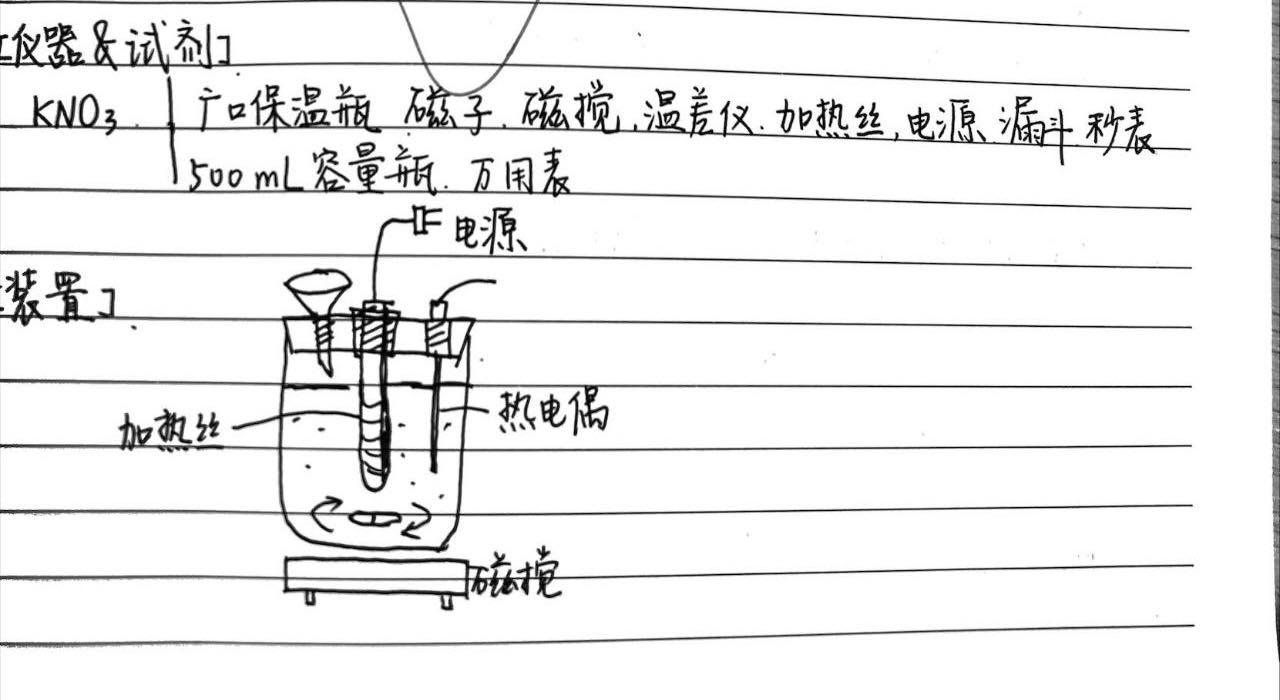 [仪器&试剂]
KNO₃. | 广口保温瓶 磁子. 磁搅, 温差仪. 加热丝, 电源. 漏斗. 秒表
500 mL 容量瓶. 万用表
电源
[装置].
加热丝
热电偶
磁搅